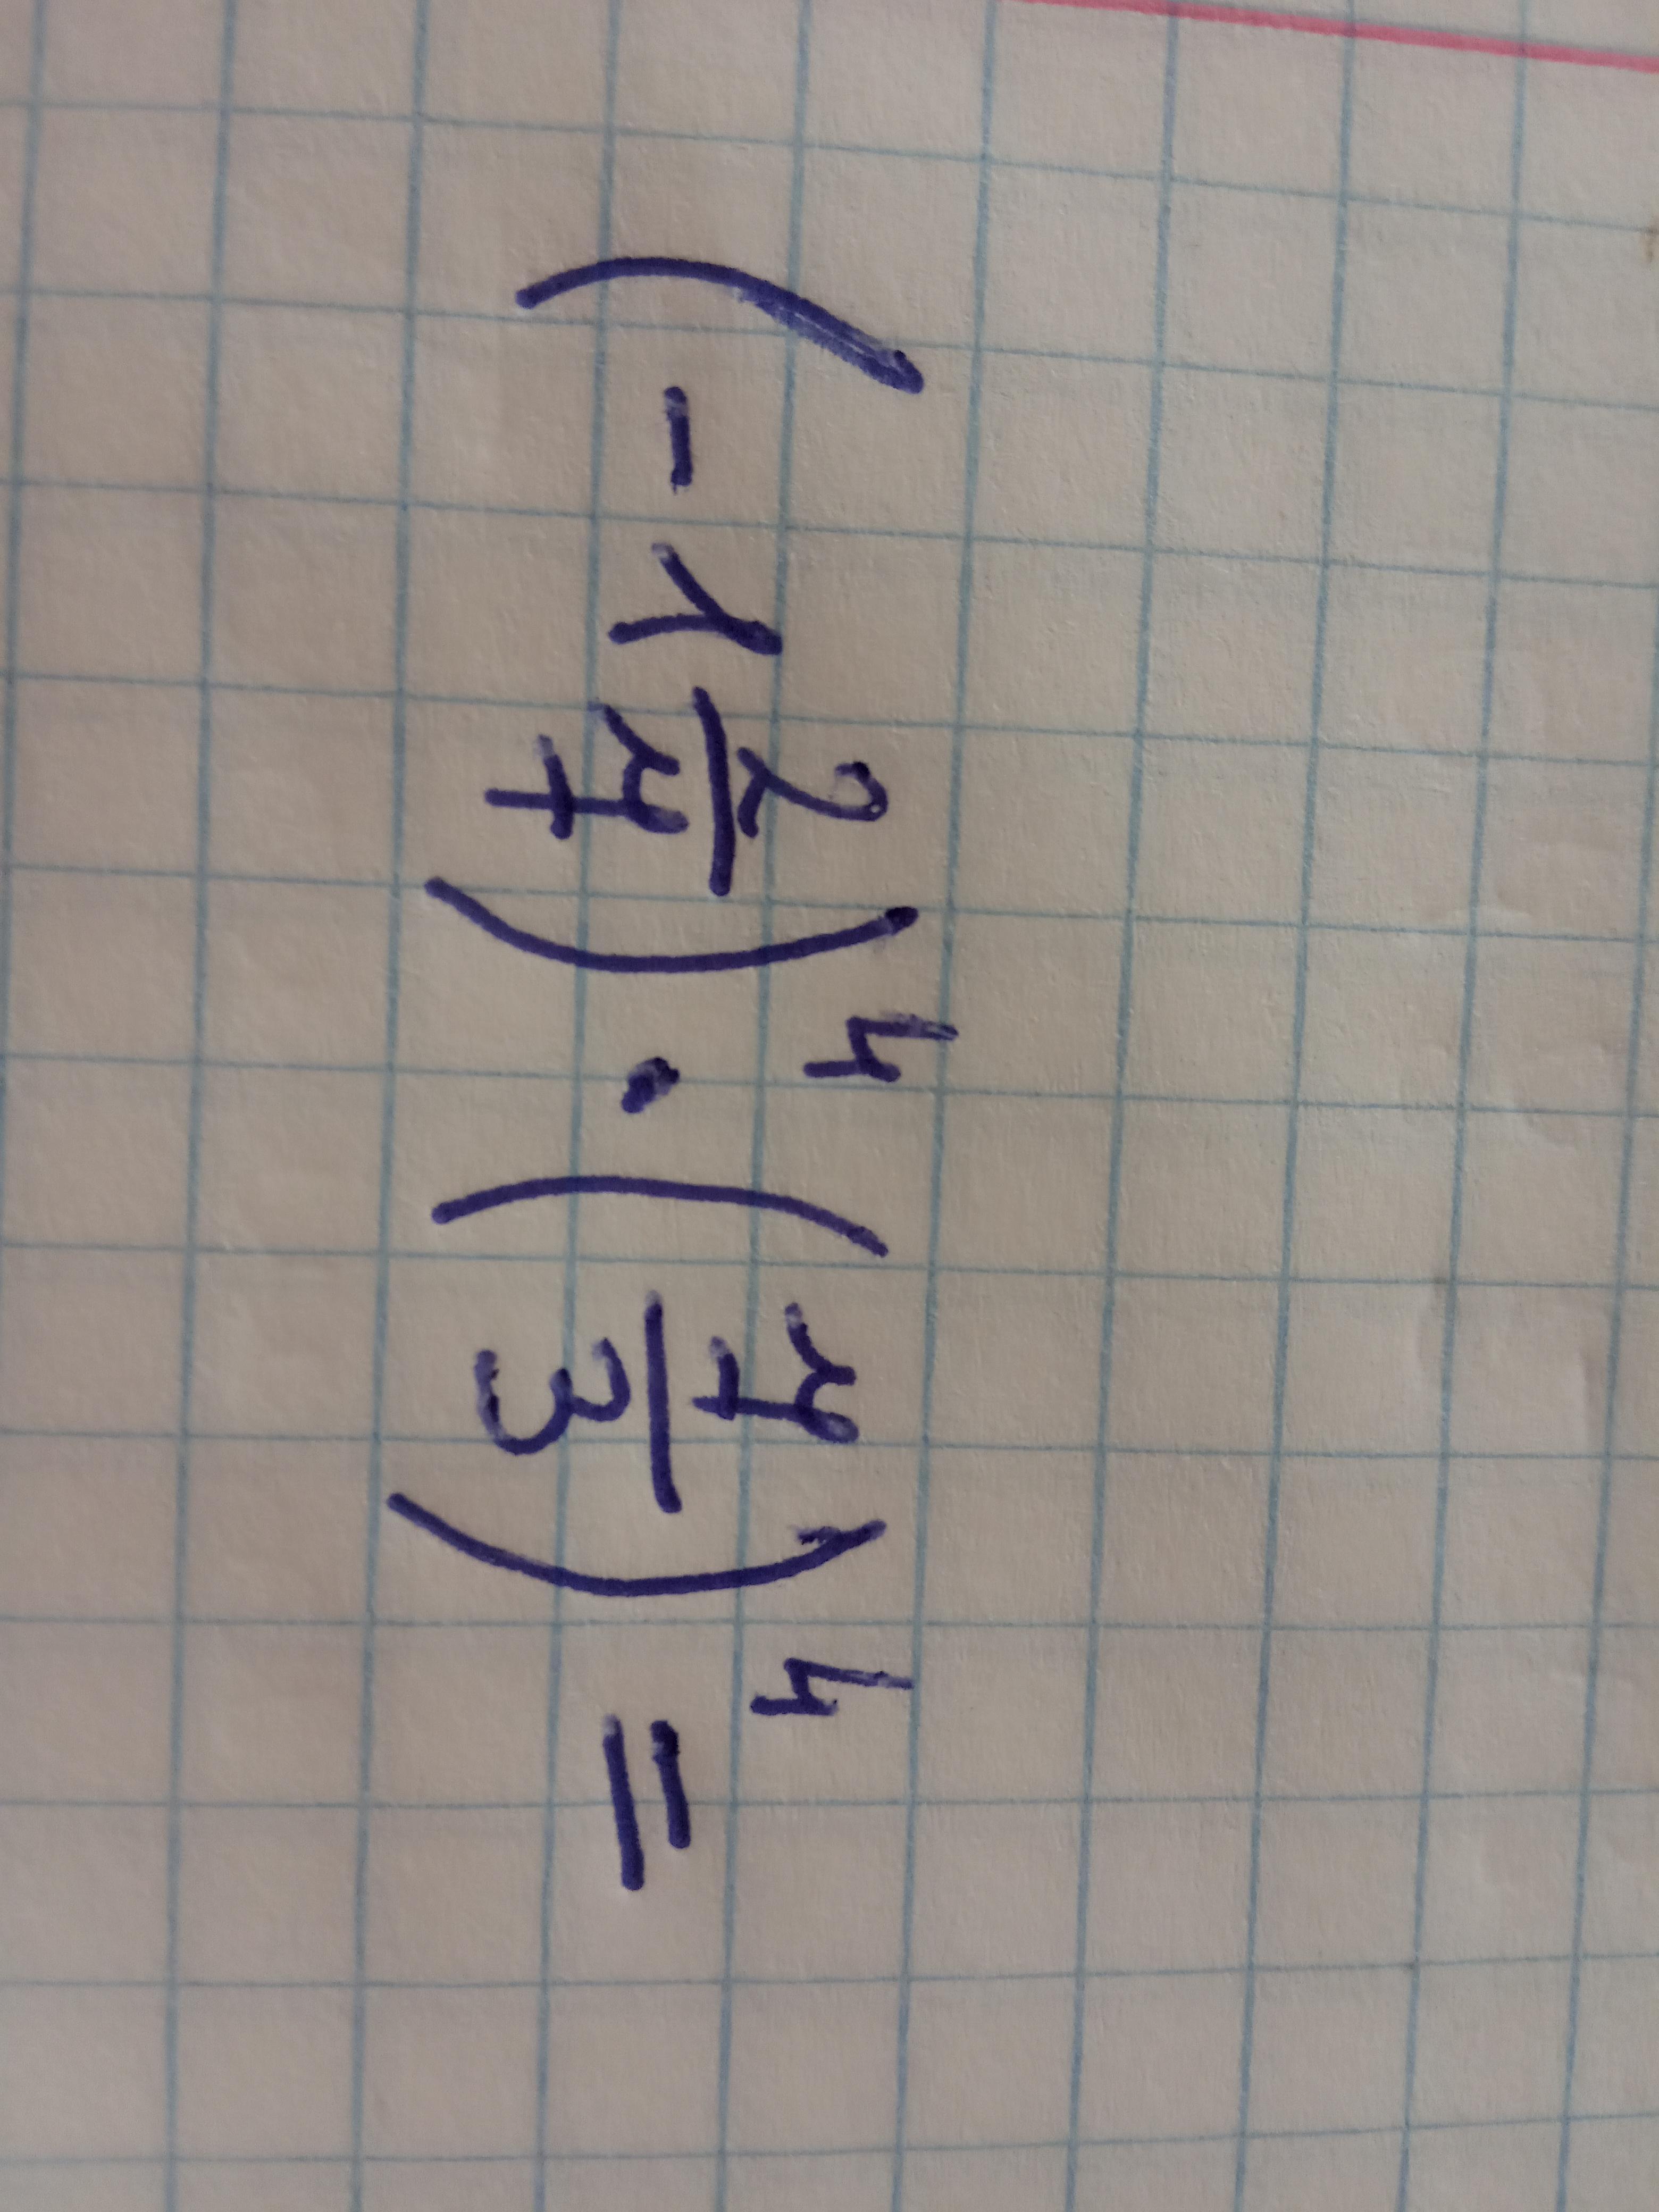 (-1 2/7)⁴ · (7/3)⁴ =